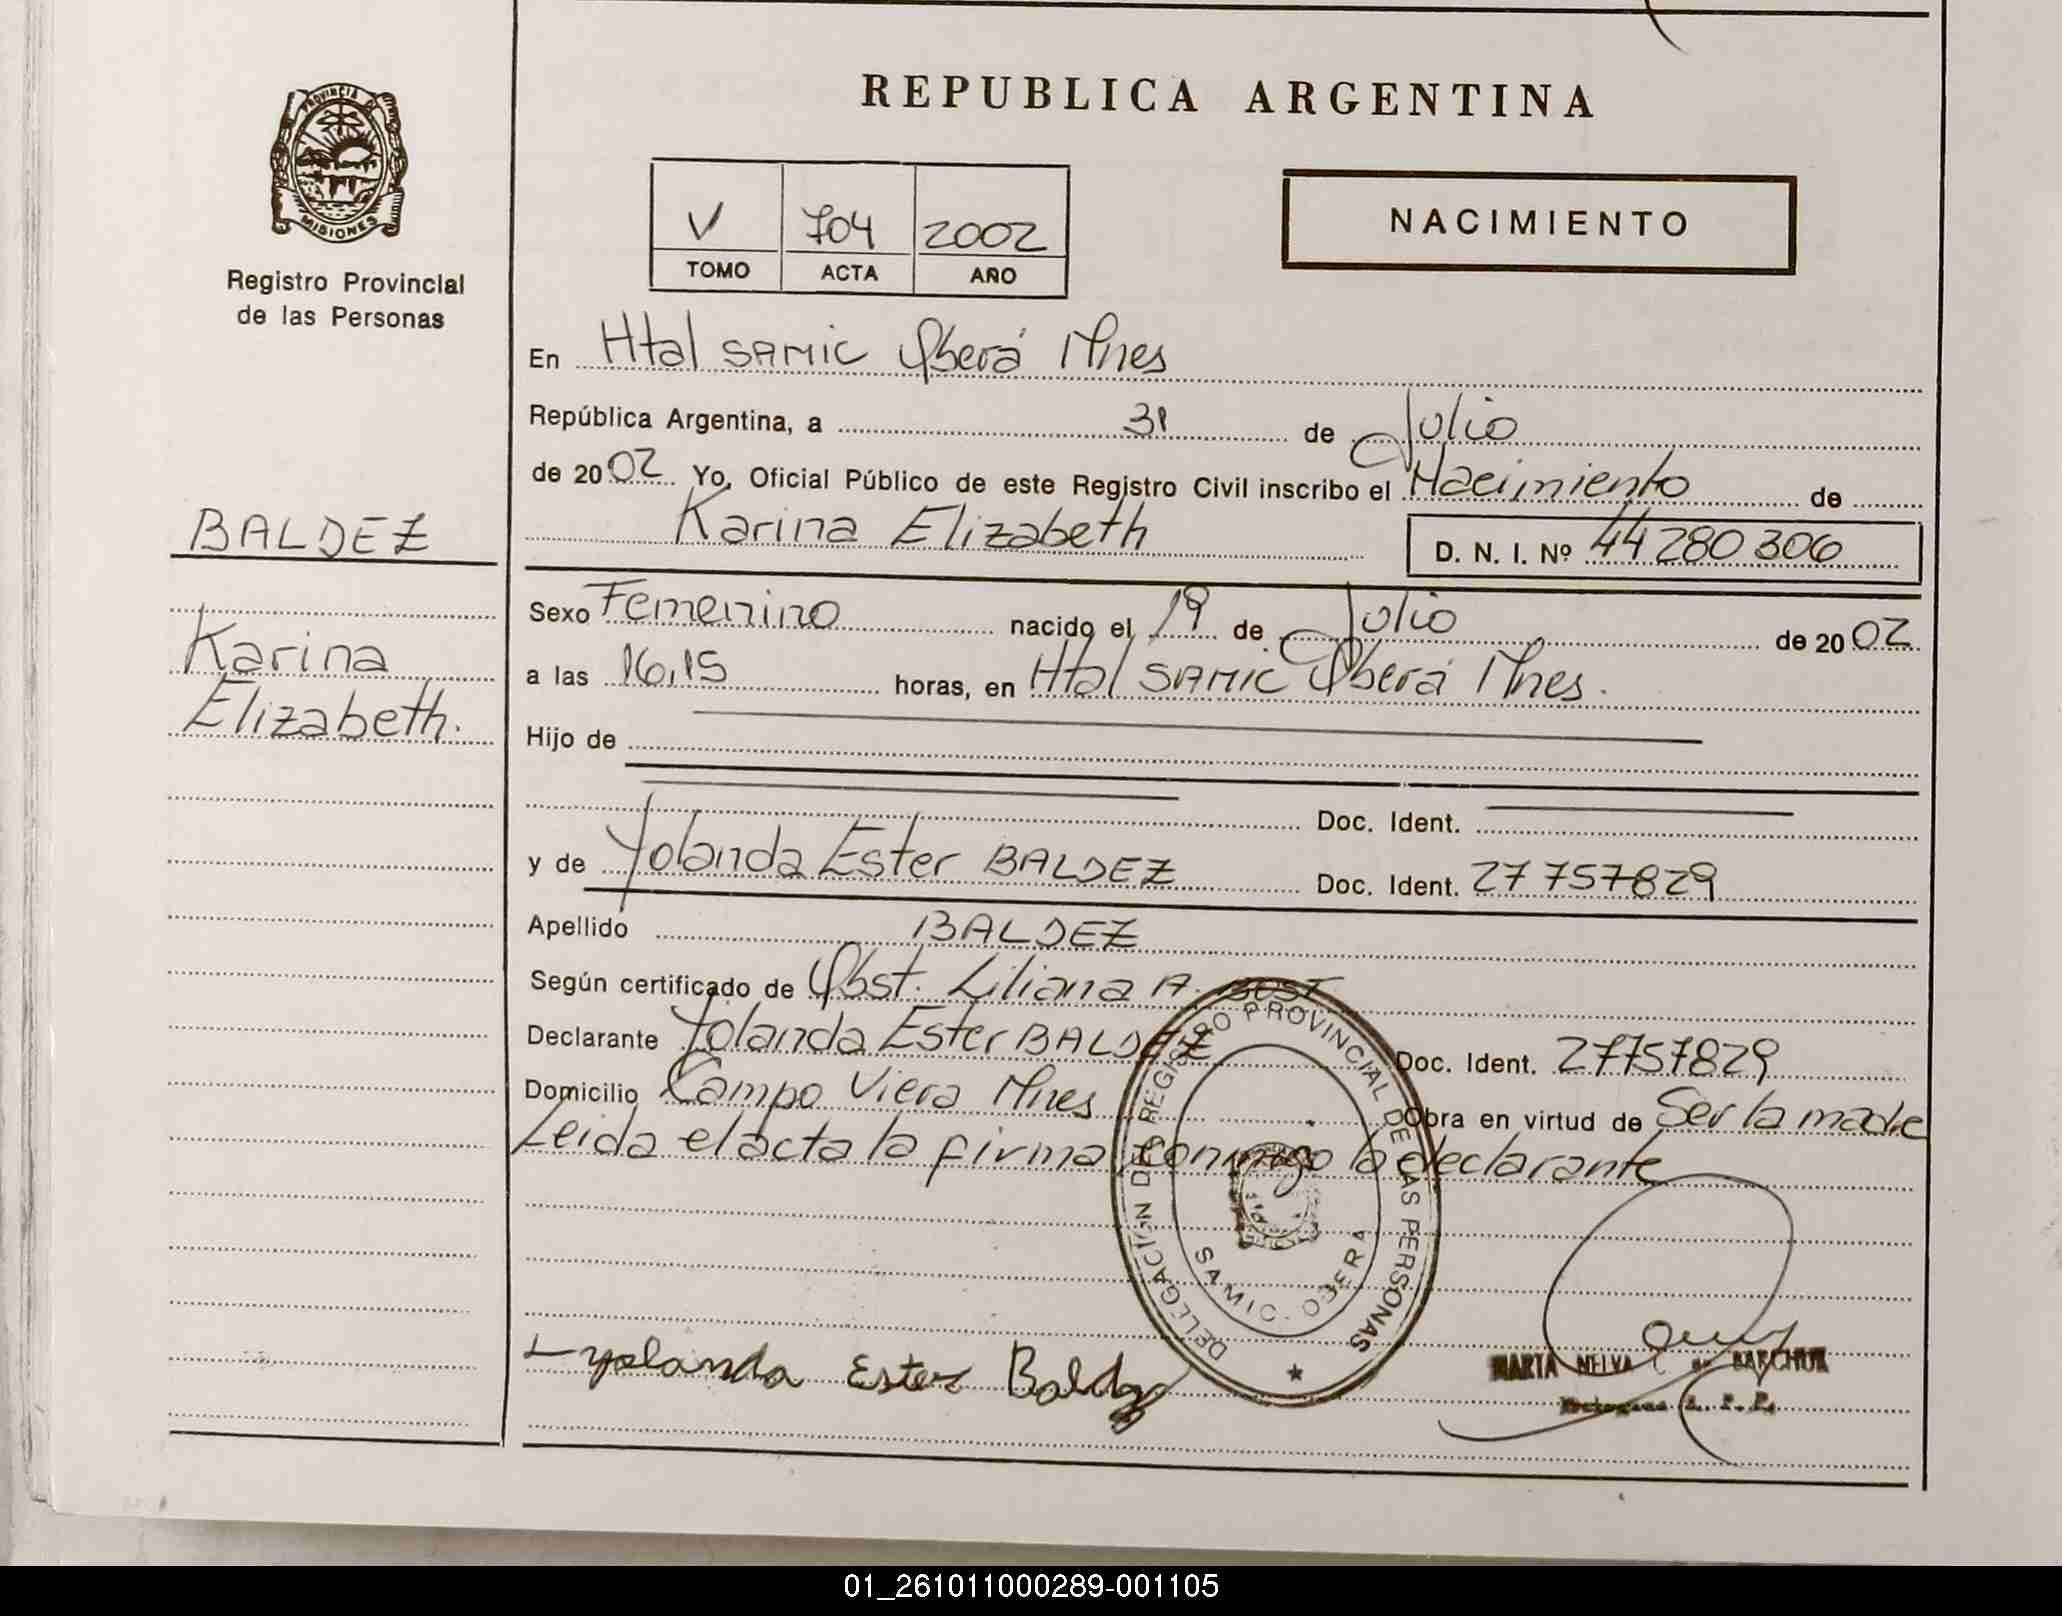 REPUBLICA ARGENTINA
PROVINCIA D MISIONES
Registro Provincial
de las Personas
V 704 2002
TOMO ACTA AÑO
NACIMIENTO
En Htal SAMIC Oberá Mnes
República Argentina, a 31 de Julio
de 2002 Yo, Oficial Público de este Registro Civil inscribo el Nacimiento de
Karina Elizabeth D. N. I. Nº 44 280 306
BALDEZ
Karina
Elizabeth.
Sexo Femenino nacido el 19 de Julio de 2002
a las 16,15 horas, en Htal SAMIC Oberá Mnes.
Hijo de
Doc. Ident.
y de Yolanda Ester BALDEZ Doc. Ident. 27 757829
Apellido BALDEZ
Según certificado de Obst. Liliana A. BOST
Declarante Yolanda Ester BALDEZ Doc. Ident. 27757829
Domicilio Campo Viera Mnes Obra en virtud de Ser la madre
Leida el acta la firma conmigo la declarante
DELEGACIÓN DEL REGISTRO PROVINCIAL DE LAS PERSONAS
SAMIC - OBERA
yolanda Ester Baldez
MARTA NELVA
01_261011000289-001105